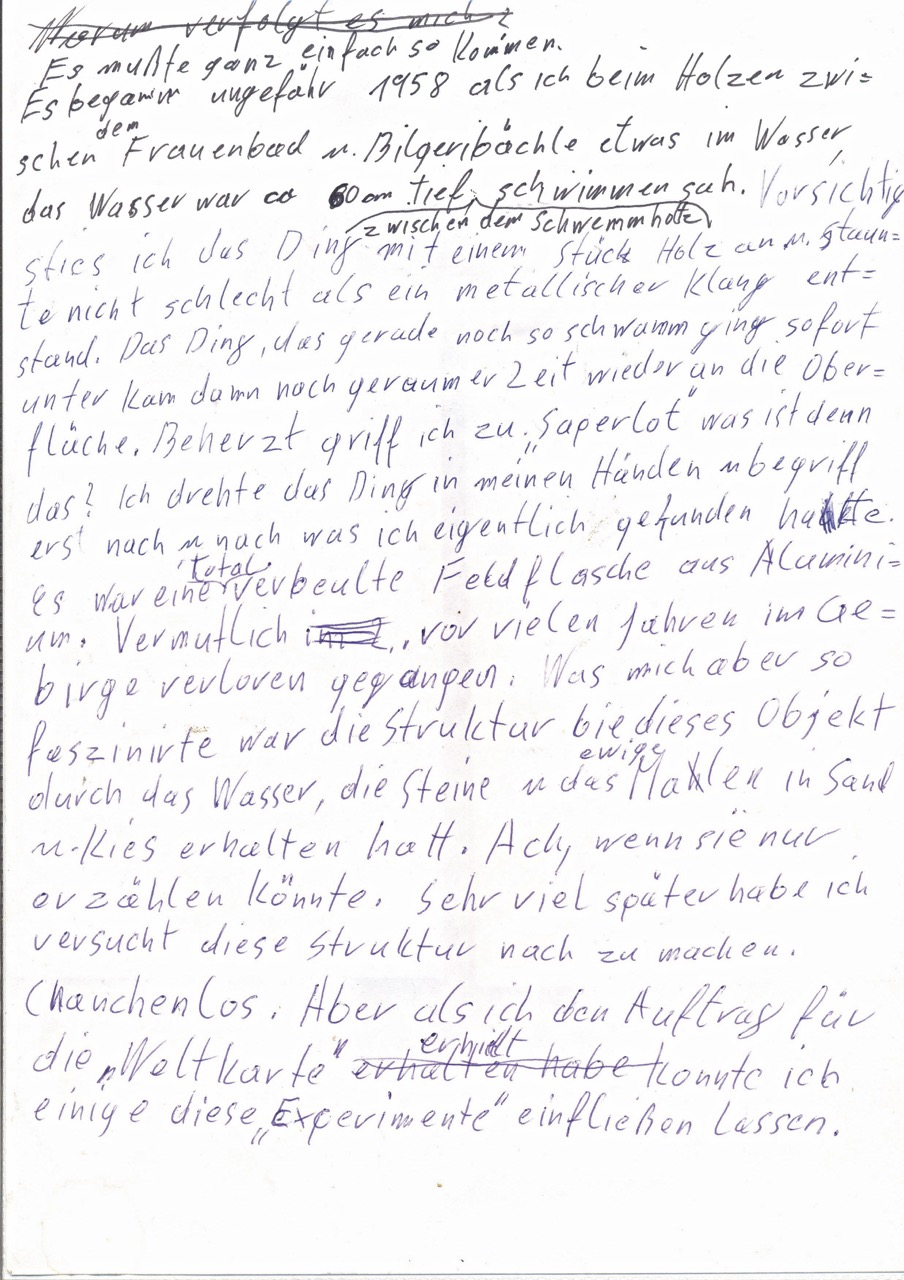 Warum verfolgt es mich?
Es mußte ganz einfach so kommen.
Es begann ungefähr 1958 als ich beim Holzen zwi=
dem
schen Frauenbad u. Bilgeribächle etwas im Wasser,
das Wasser war ca 60 cm tief, schwimmen sah. Vorsichtig
zwischen dem Schwemmholz
sties ich das Ding mit einem Stück Holz an u. staun=
te nicht schlecht als ein metallischer Klang ent=
stand. Das Ding, das gerade noch so schwamm ging sofort
unter kam dann nach geraumer Zeit wieder an die Ober=
fläche. Beherzt griff ich zu. „Saperlot" was ist denn
das? Ich drehte das Ding in meinen Händen u begriff
erst nach u nach was ich eigentlich gefunden hatte.
total
Es war eine verbeulte Feldflasche aus Alumini=
um. Vermutlich vor vielen Jahren im Ge=
birge verloren gegangen. Was mich aber so
faszinirte war die Struktur die dieses Objekt
ewige
durch das Wasser, die Steine u das Mahlen in Sand
u. Kies erhalten hatt. Ach, wenn sie nur
erzählen könnte. Sehr viel später habe ich
versucht diese Struktur nach zu machen.
Chanchenlos. Aber als ich den Auftrag für
erhielt
die „Weltkarte" erhalten habe konnte ich
einige diese „Experimente" einfließen lassen.